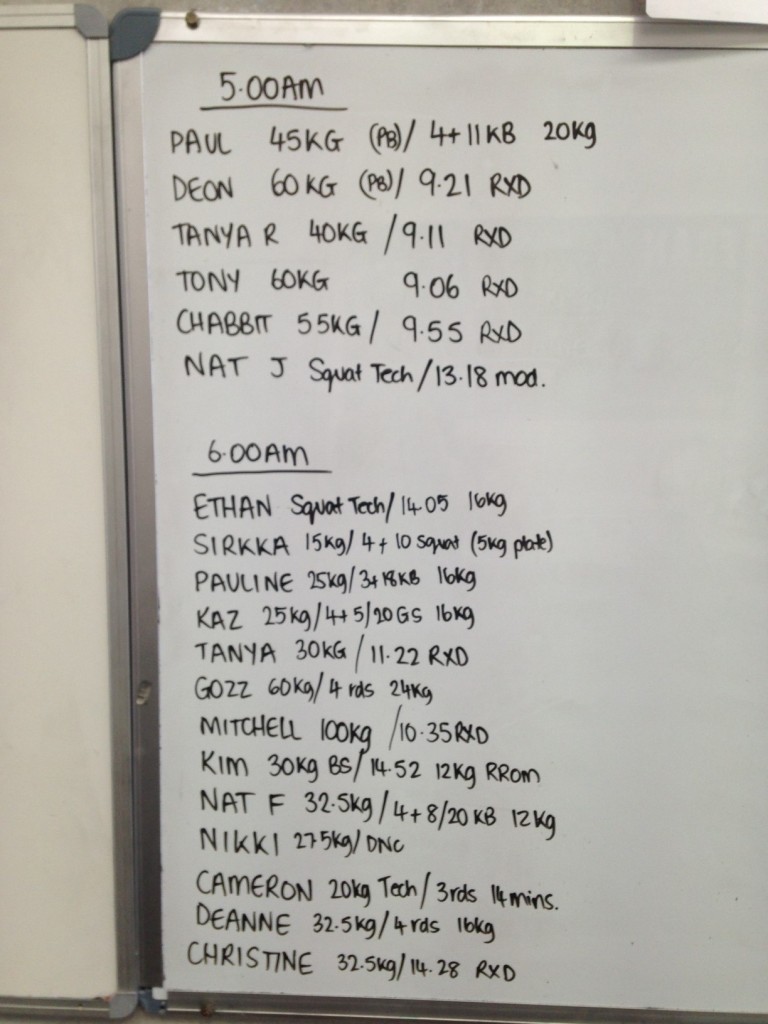 5.00AM
PAUL 45KG (PB)/ 4+11KB 20Kg
DEON 60KG (PB)/ 9.21 RXD
TANYA R 40KG /9.11 RXD
TONY 60KG 9.06 RXD
CHABBIT 55KG/ 9.55 RXD
NAT J Squat Tech/13.18 mod.
6.00AM
ETHAN Squat Tech/14.05 16kg
SIRKKA 15kg/ 4+10 squat (5kg plate)
PAULINE 25kg/3+18KB 16kg
KAZ 25kg/4+5/20GS 16kg
TANYA 30KG /11.22 RXD
GOZZ 60kg/4 rds 24kg
MITCHELL 100kg /10.35 RXD
KIM 30kg BS/14.52 12kg RRom
NAT F 32.5kg/4+8/20 KB 12kg
NIKKI 27.5kg/DNC
CAMERON 20kg Tech/3rds 14mins.
DEANNE 32.5kg/4 rds 16kg
CHRISTINE 32.5kg/14.28 RXD